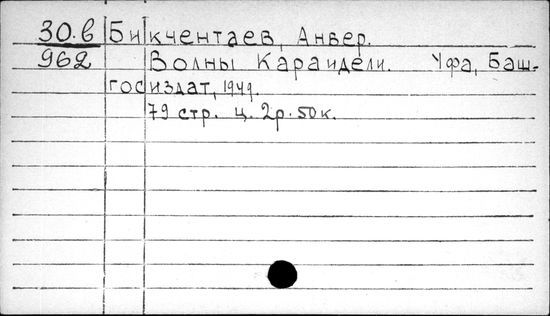 30.в Бикчентаев, Анвер.
962 Волны Караидели. Уфа, Баш-
госиздат, 1949.
79 стр. ц. 2р. 50к.